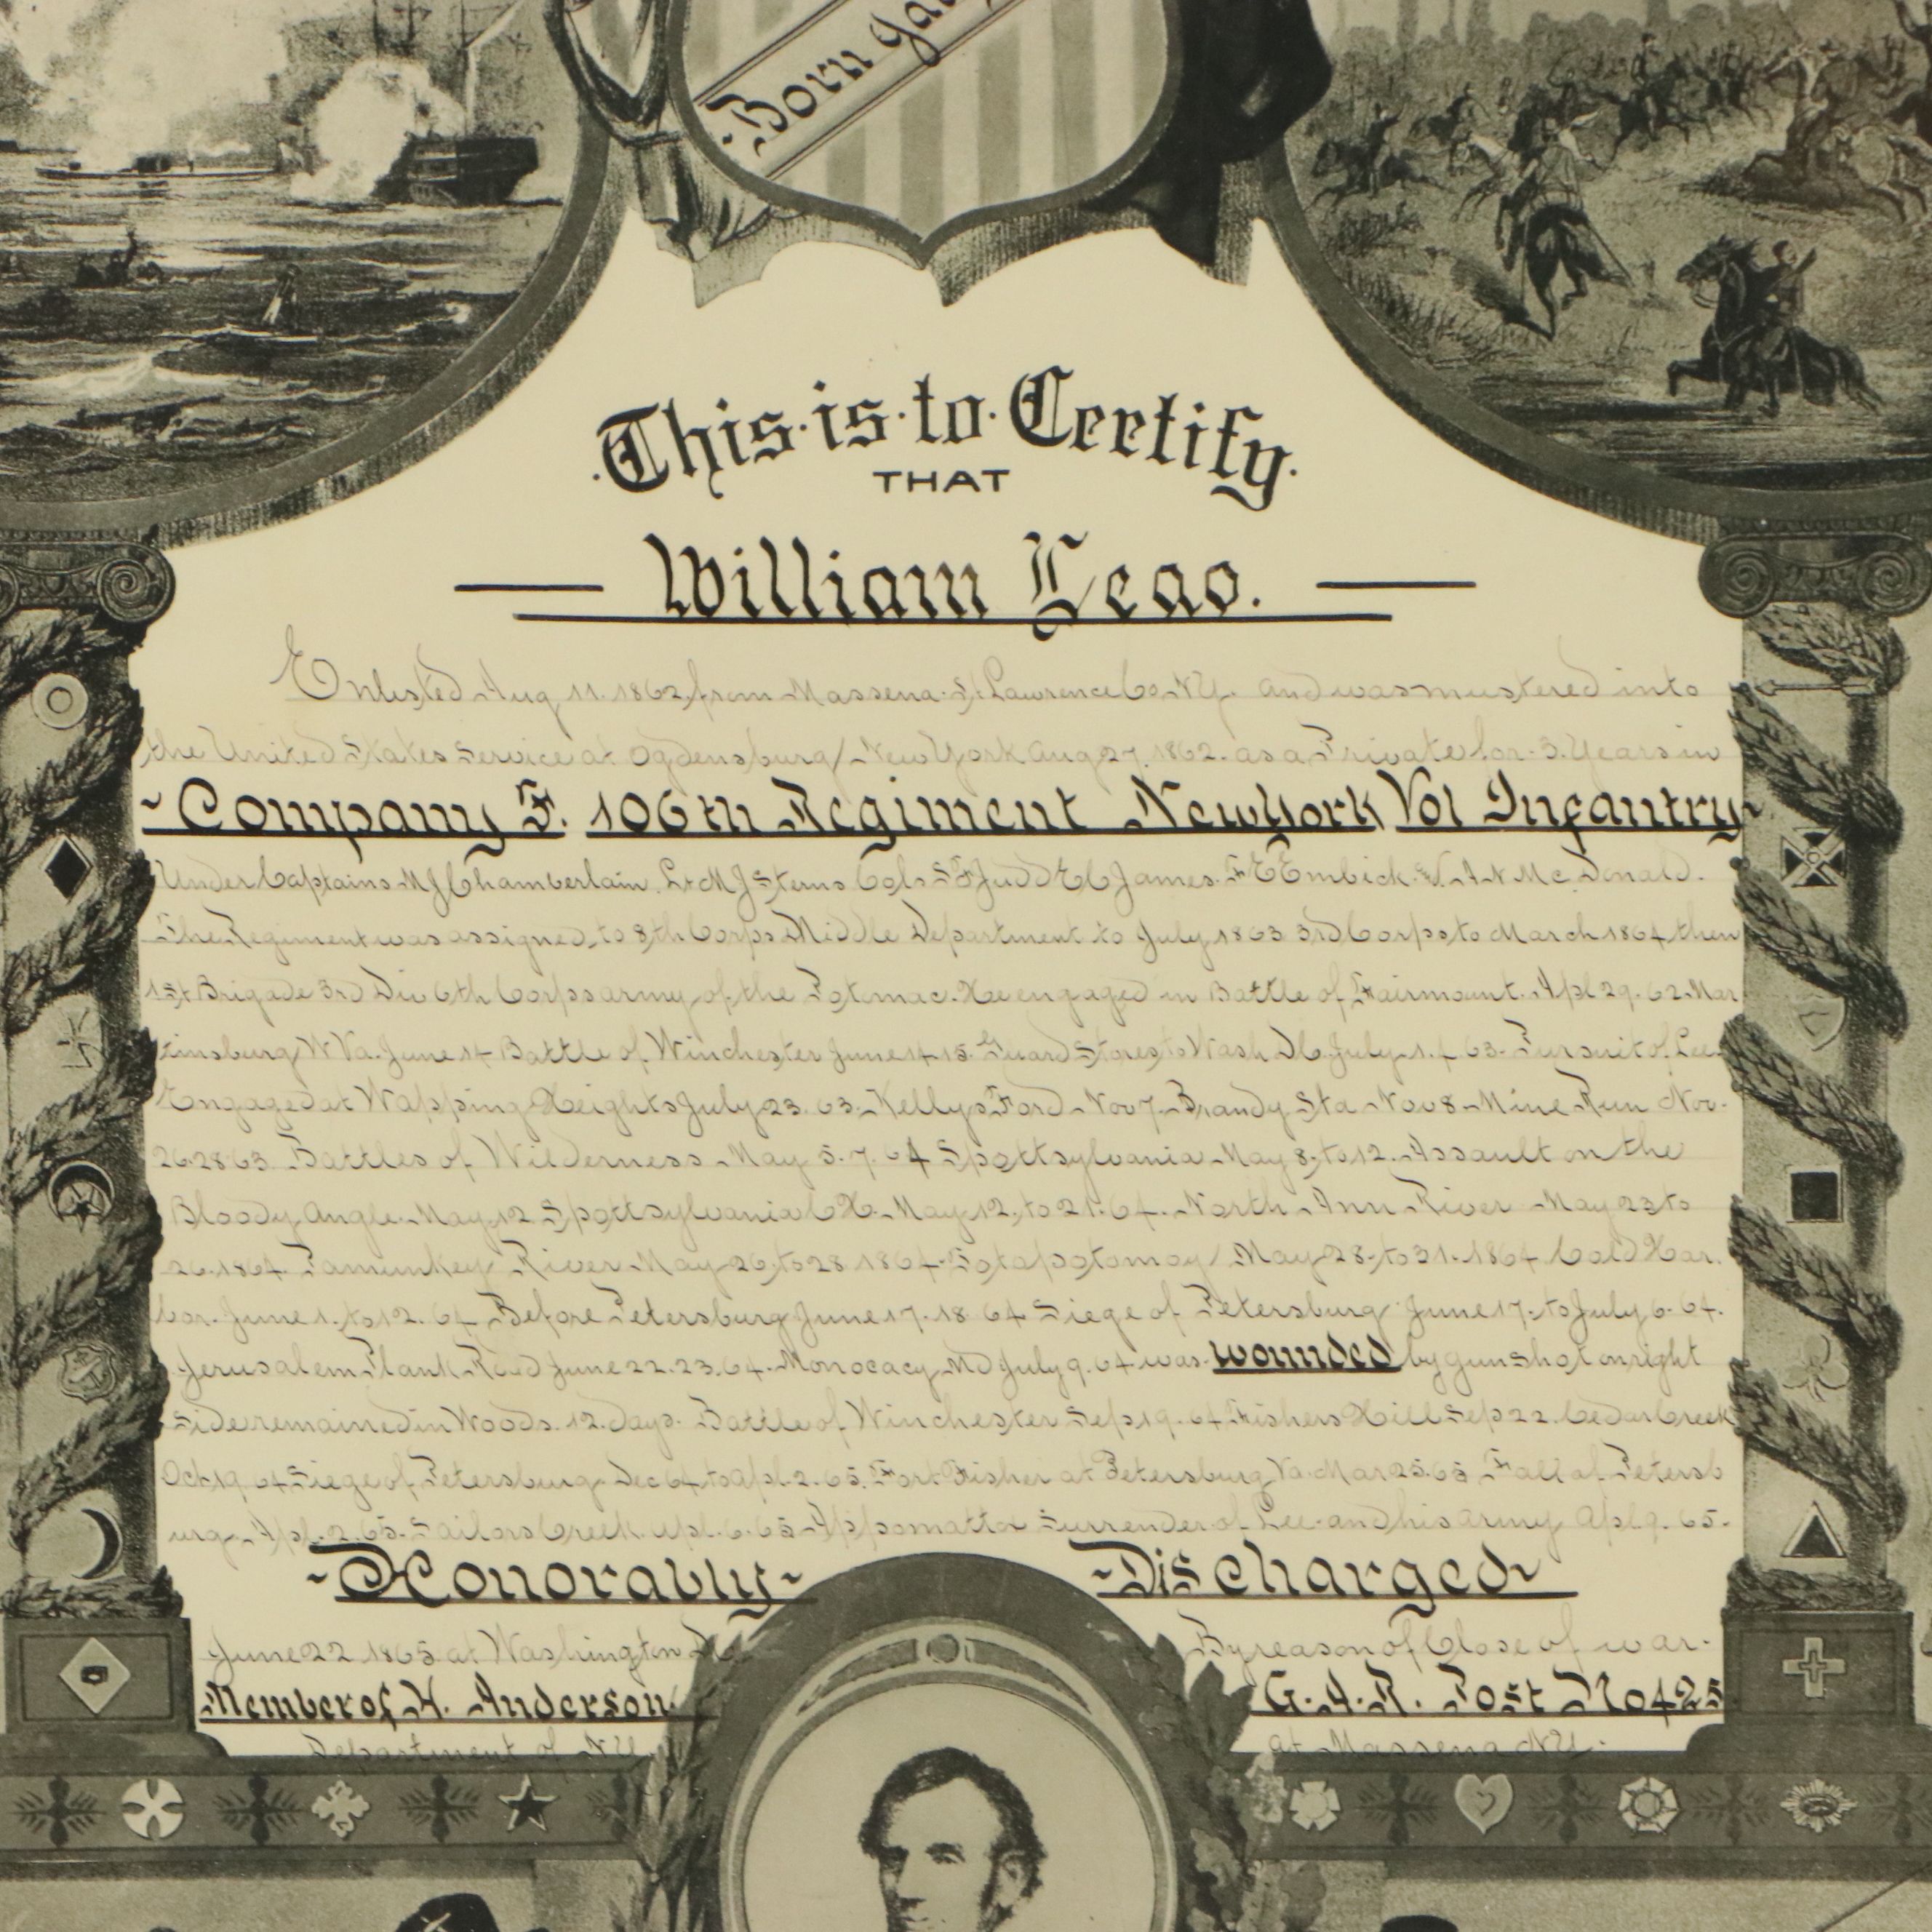 Born Ja
This·is·to·Certify
THAT
William Leao.
Enlisted Aug 11. 1862, from Massena. St Lawrence Co NY. and was mustered into
the United States Service at Ogdensburg New York Aug 27, 1862. as a Private for 3. Years in
Company F. 106th Regiment New York Vol Infantry
Under Captains M J Chamberlain. Lt M J Sterns Cols S F Judd E C James. F E Embick. A N Mc Donald.
The Regiment was assigned to 8th Corps Middle Department to July 1863 3rd Corps to March 1864, then
1st Brigade 3rd Div 6th Corps army of the Potomac. He engaged in Battle of Fairmount. Apl 29. 62. Mar
tinsburg W Va. June 14 Battle of Winchester June 14 15. Guard Stores to Wash D C July 1. 4 63. Pursuit of Lee.
Engaged at Wapping Heights July 23. 63. Kellys Ford Nov 7. Brandy Sta Nov 8 Mine Run Nov.
26.28 63. Battles of Wilderness May 5. 7. 64 Spottsylvania May 8, to 12. Assault on the
Bloody Angle. May 12 Spottsylvania C H. May 12, to 21. 64. North Ann River May 23 to
26. 1864. Pamunkey River May 26, to 28 1864. Totapotomoy May 28. to 31. 1864. Cold Har.
bor. June 1. to 12. 64 Before Petersburg June 17. 18 64 Siege of Petersburg June 17. to July 6. 64.
Jerusalem Plank Road June 22. 23. 64. Monocacy Md July 9. 64 was wounded by gun shot on right
side remained in Woods. 12. days. Battle of Winchester Sep 19. 64 Fishers Hill Sep 22. Cedar Creek
Oct 19 64 Siege of Petersburg Dec 64 to Apl. 2. 65. Fort Fisher at Petersburg Va. Mar 25. 65 Fall of Petersb
urg. Apl. 2. 65. Sailors Creek. Apl. 6. 65 Appomattox Surrender of Lee and his army Apl 9. 65.
Honorably Discharged
June 22 1865 at Washington D C By reason of Close of war.
Member of H. Anderson G. A. R. Post No 425
Department of NY at Massena NY.